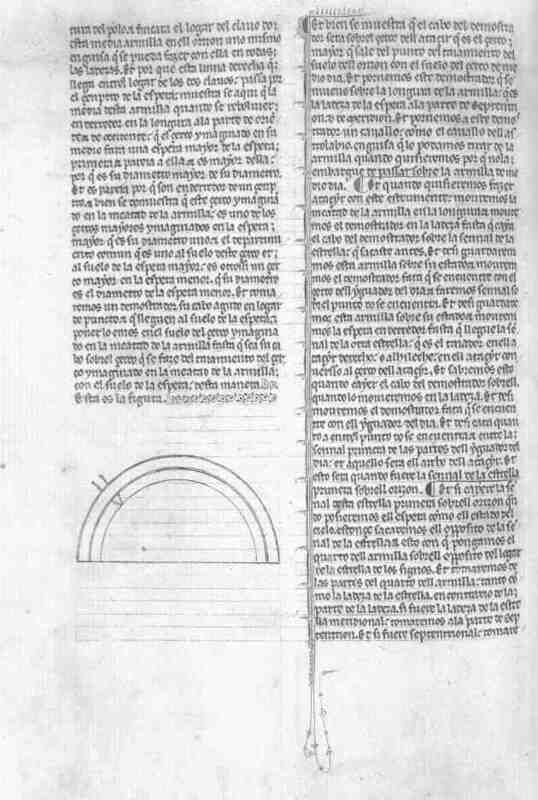 tura del polo. & fincara el logar del clauo dor
esta media armilla en ell orizon uno mismo
en guisa q̃ se pueda fazer con ella en todas
las ladezas. Et por que esta linna derecha q̃
llega entrel logar de los dos clauos: passa por
el cenptro de la espera; muestra se aqui q̃ la
media desta armilla quando se reboluiere;
en derredor en la longura ala parte de orien
te & de occidente: q̃ el cerco ymaginado en su
medio fara una espera mayor de la espera
primera & pareia a ella & es mayor della:
por q̃ es su diametro mayor de su diametro.
Et es pareia por q̃ son en derredor de un cenp
tro. & bien se demuestra q̃ este cerco ymagina
do en la meatad de la armilla: es uno de los
cercos mayores ymaginados en la espera
mayor. q̃ es su diametro uno. & el departimi
ento comun que es uno al suelo deste cerco et
al suelo de la espera mayor: es otrossi un cer
co mayor en la espera menor. que su diametro
es el diametro de la espera menor. Et toma
remos un demostrador. su cabo agudo en logar
de puncto. & q̃ lleguen al suelo de la espera.
poner lo emos en el suelo del cerco ymagina
do en la meatad de la armilla fasta q̃ sea su ca
bo sobrel cerco q̃ se faze del taiamiento del cer
co ymaginado en la meatad de la armilla:
con el suelo de la espera: desta manera.
Esta es la figura.
Et bien se muestra q̃ el cabo del demostra
dor sera sobrel cerco dell atacyr q̃ es el cerco
mayor q̃ sale del punto del taiamiento del
suelo dell orizon con el suelo del cerco de me
dio dia. Et pornemos este demostrador q̃ se
mueua sobre la longura de la armilla: q̃ es
la ladeza de la espera ala parte de septentri
on. o de meridion. Et pornemos a este demos
trador un cauallo: como el cauallo dell as
trolabio. en guisa q̃ lo podamos tirar de la
armilla quando quisieremos por q̃ nol
embargue de passar sobre la armilla de me
dio dia. ¶ Et quando quisieremos fazer
atacyr con este estrumente: mouremos la
meatad de la armilla en la longura. & moure
mos el demostrador en la ladeza fasta q̃ caya
el cabo del demostrador sobre la sennal de la
estrella: q̃ fazaste antes. Et desi guardaremos
mos esta armilla sobre su estado. & mouremos
mos el demostrador fata q̃ se encuentre con el
cerco dell yguador del dia. & faremos sennal so
bre el punto do se encuentra. Et desi guardare
mos esta armilla sobre su estado. & moure
mos la espera en derredor fasta q̃ llegue la sen
nal de la otra estrella: q̃ es el taiador en ell a
tacyr derecho: o alhileche: en ell atacyr con
uerso al cerco dell atacyr. Et sabremos esto
quando cayer el cabo del demostrador sobrell.
quando lo mouieremos en la ladeza. Et desi
mouremos el demostrador fata q̃ se encuen
tre con ell yguador del dia. Et desi cata quan
to a entrel punto do se encuentra & entre la
sennal primera de las partes dell yguador del
dia: et aquello sera ell arcbo dell atacyr. Et
esto sera quando fuere la sennal de la estrella
primera sobrell orizon. ¶ Et si cayere la se
nal desta estrella primera sobrell orizon q̃n
do posieremos ell espera como ell estado del
cielo. estonçe sacaremos ell opposito de la se
nal de la estrella. & esto con q̃ pongamos el
quarto dell armilla sobrell opposito del logar
de la estrella de los signos. Et tomaremos de
las partes del quarto dell armilla: tanto co
mo la ladeza de la estrella. en contrario de la
parte de la ladeza. si fuere la ladeza de la estre
lla meridional: tomaremos ala parte de sep
tentrion. Et si fuere septentrional: tomare